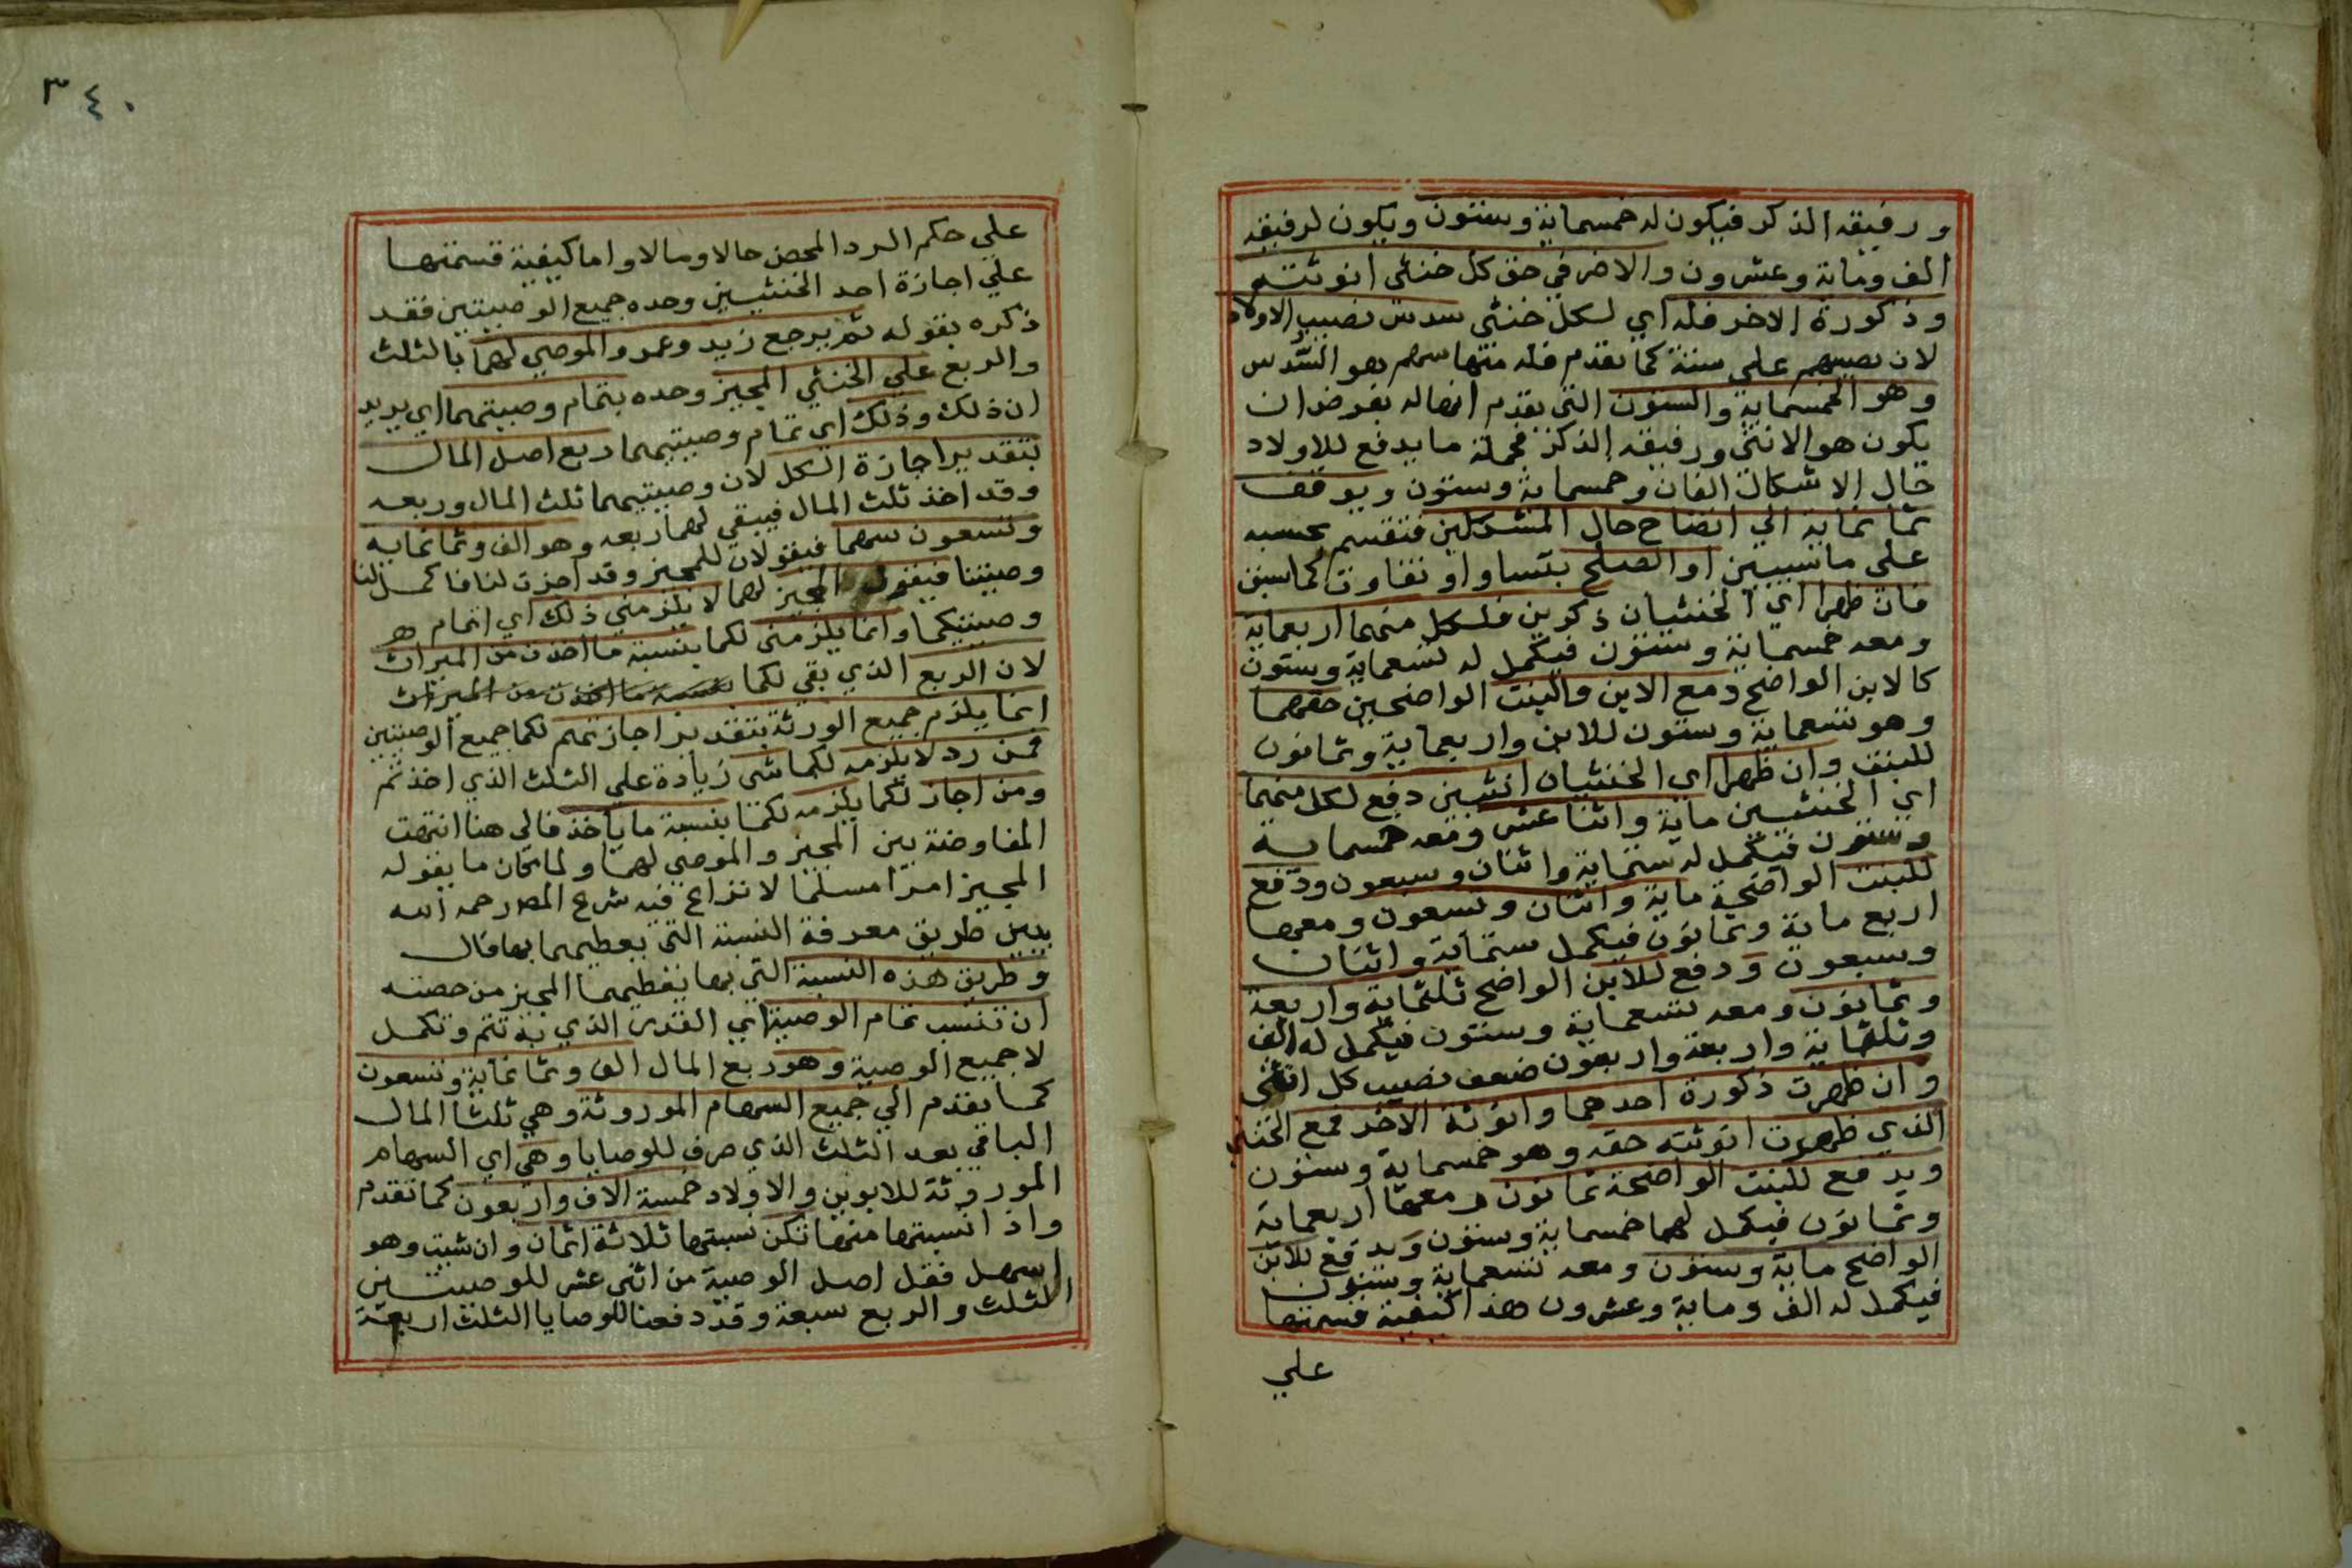 ورفيقه الذكر فيكون له خمسماية وستون ويكون لرفيقه
الف وماية وعشرون والاضر في حق كل خنثى انوثته
وذكورة الاخر فله اي لكل خنثى سدس نصيب الاولاد
لان نصيبهم على ستة كما تقدم فله منها سهم وهو السدس
وهو الخمسماية والستون التي تقدم انها له بفرض ان
يكون هو الانثى ورفيقه الذكر فجملة ما يدفع للاولاد
حال الاشكال الفان وخمسماية وستون ويوقف
ثمانماية الي اتضاح حال المشكلين فتقسم بحسبه
على ما سيبين او الصلح بتساو او تفاوت كما سبق
فان ظهرا اي الخنثيان ذكرين فلكل منهما اربعماية
ومعه خمسماية وستون فيكمل له تسعماية وستون
كالابن الواضح ومع الابن والبنت الواضحين حقهما
وهو تسعماية وستون للابن واربعماية وثمانون
للبنت وان ظهرا اي الخنثيان انثيين دفع لكل منهما
اي الخنثيين ماية واثنا عشر ومعه خمسماية
وستون فيكمل له ستماية واثنان وسبعون ودفع
للبنت الواضحة ماية واثنان وتسعون ومعها
اربع ماية وثمانون فيكمل ستماية واثنان
وسبعون ودفع للابن الواضح ثلثماية واربعة
وثمانون ومعه تسعماية وستون فيكمل له الف
وثلثماية واربعة واربعون ضعف نصيب كل انثى
وان ظهرت ذكورة احدهما وانوثة الاخر فمع الخنثى
الذي ظهرت انوثته حقه وهو خمسماية وستون
ويدفع للبنت الواضحة ثمانون ومعها اربعماية
وثمانون فيكمل لهما خمسماية وستون ويدفع للابن
الواضح ماية وستون ومعه تسعماية وستون
فيكمل له الف وماية وعشرون هذا كيفية قسمتها
علي
٣٤٠
علي حكم الرد المحض حالا ومالا واما كيفية قسمتها
علي اجازة احد الخنثيين وحده جميع الوصيتين فقد
ذكره بقوله ثم يرجع زيد وعمرو الموصي لهما بالثلث
والربع علي الخنثي المجيز وحده بتمام وصيتهما اي يريد
ان ذلك وذلك اي تمام وصيتيهما ربع اصل المال
بتقدير اجازة الكل لان وصيتيهما ثلث المال وربعه
وقد اخذ ثلث المال فيبقي لهما ربعه وهو الف وثمانماية
وتسعون سهما فيقولان للمجيز وقد اجزت لنا فاكمل لنا
وصيتنا فيقول المجيز لهما لا يلزمني ذلك اي اتمام
وصيتكما وانما يلزمني لكما بنسبة ما اخذت من الميراث
لان الربع الذي بقي لكما بنسبة ما اخذت من الميراث
انما يلزم جميع الورثة بتقدير اجازتهم لكما جميع الوصيتين
فمن رد لا يلزمه لكما شي زيادة علي الثلث الذي اخذتم
ومن اجاز لكما يلزمه لكما بنسبة ما ياخذ فالي هنا انتهت
المفاوضة بين المجيز والموصي لهما ولما كان ما يقوله
المجيز امرا مسلما لا نزاع فيه شرع المص رحمه الله
يبين طريق معرفة النسبة التي يعطيهما بها فقال
وطريق هذه النسبة التي بها يعطيهما المجيز من حصته
ان تنسب تمام الوصية اي القدر الذي به تتم وتكمل
لا جميع الوصية وهو ربع المال الف وثمانماية وتسعون
كما تقدم الي جميع السهام الموروثة وهي ثلثا المال
الباقي بعد الثلث الذي صرف للوصايا وهي اي السهام
الموروثة للابوين والاولاد خمسة الاف واربعون كما تقدم
واذا نسبتها منها تكن نسبتها ثلاثة اثمان وان شيت وهو
اسهل فقل اصل الوصية من اثني عشر للوصيتين
الثلث والربع سبعة وقد دفعنا للوصايا الثلث اربعة